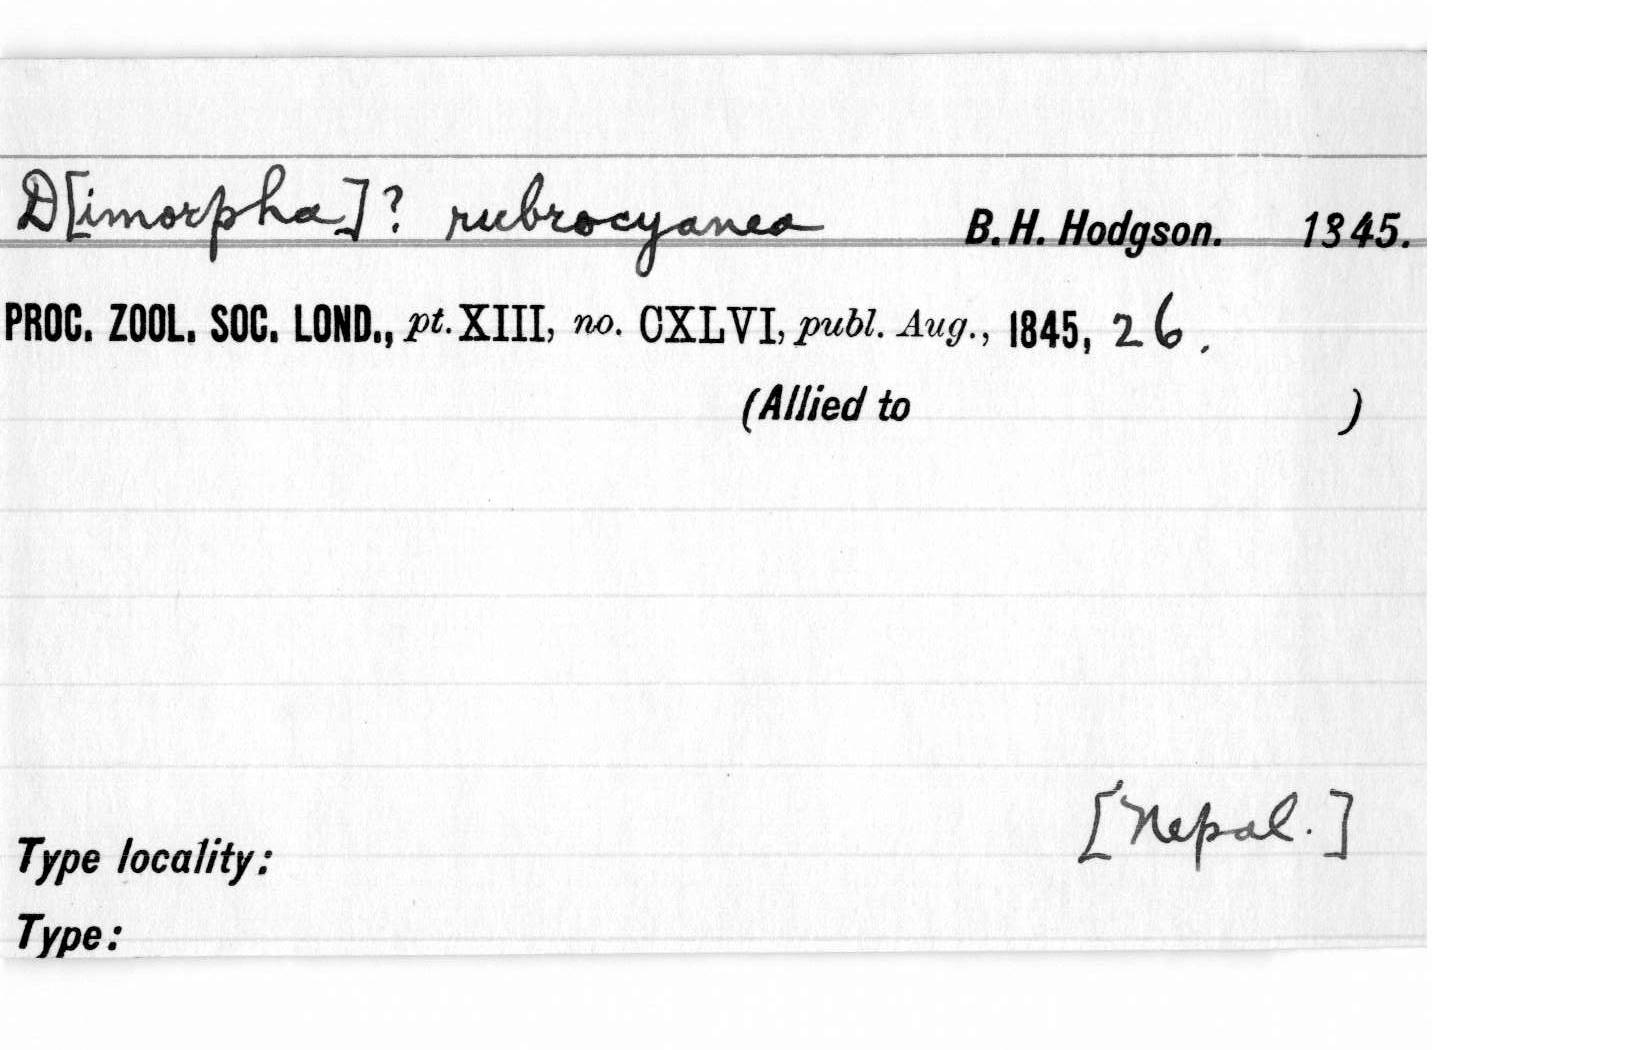 D[imorpha]? rubrocyanea B. H. Hodgson. 1845.
PROC. ZOOL. SOC. LOND., pt. XIII, no. CXLVI, publ. Aug., 1845, 26.
(Allied to )
[Nepal.]
Type locality:
Type: